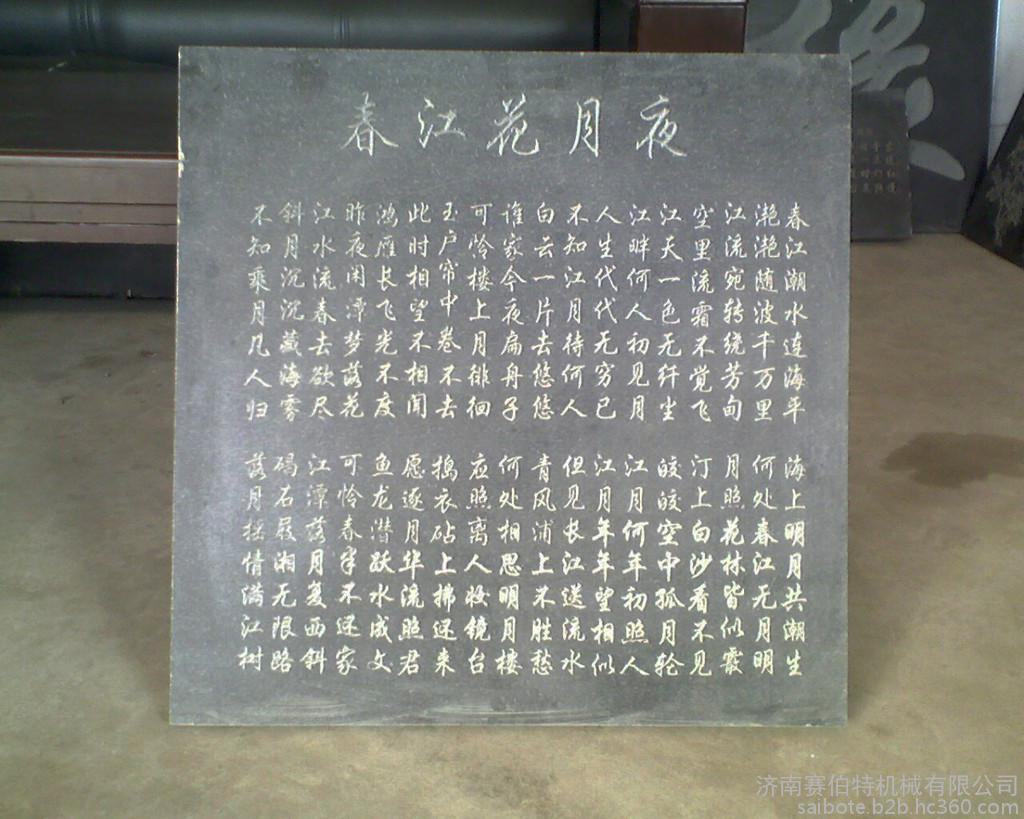 春江花月夜
春江潮水连海平
海上明月共潮生
滟滟随波千万里
何处春江无月明
江流宛转绕芳甸
月照花林皆似霰
空里流霜不觉飞
汀上白沙看不见
江天一色无纤尘
皎皎空中孤月轮
江畔何人初见月
江月何年初照人
人生代代无穷已
江月年年望相似
不知江月待何人
但见长江送流水
白云一片去悠悠
青风浦上不胜愁
谁家今夜扁舟子
何处相思明月楼
可怜楼上月徘徊
应照离人妆镜台
玉户帘中卷不去
捣衣砧上拂还来
此时相望不相闻
愿逐月华流照君
鸿雁长飞光不度
鱼龙潜跃水成文
昨夜闲潭梦落花
可怜春半不还家
江水流春去欲尽
江潭落月复西斜
斜月沉沉藏海雾
碣石湘无限路
不知乘月几人归
落月摇情满江树
济南赛伯特机械有限公司
saibote.b2b.hc360.com